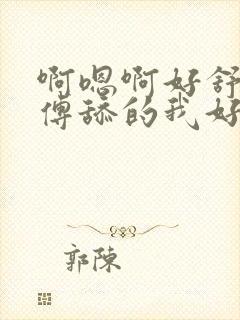 啊嗯啊好舒
傅舔的我好
郭陳